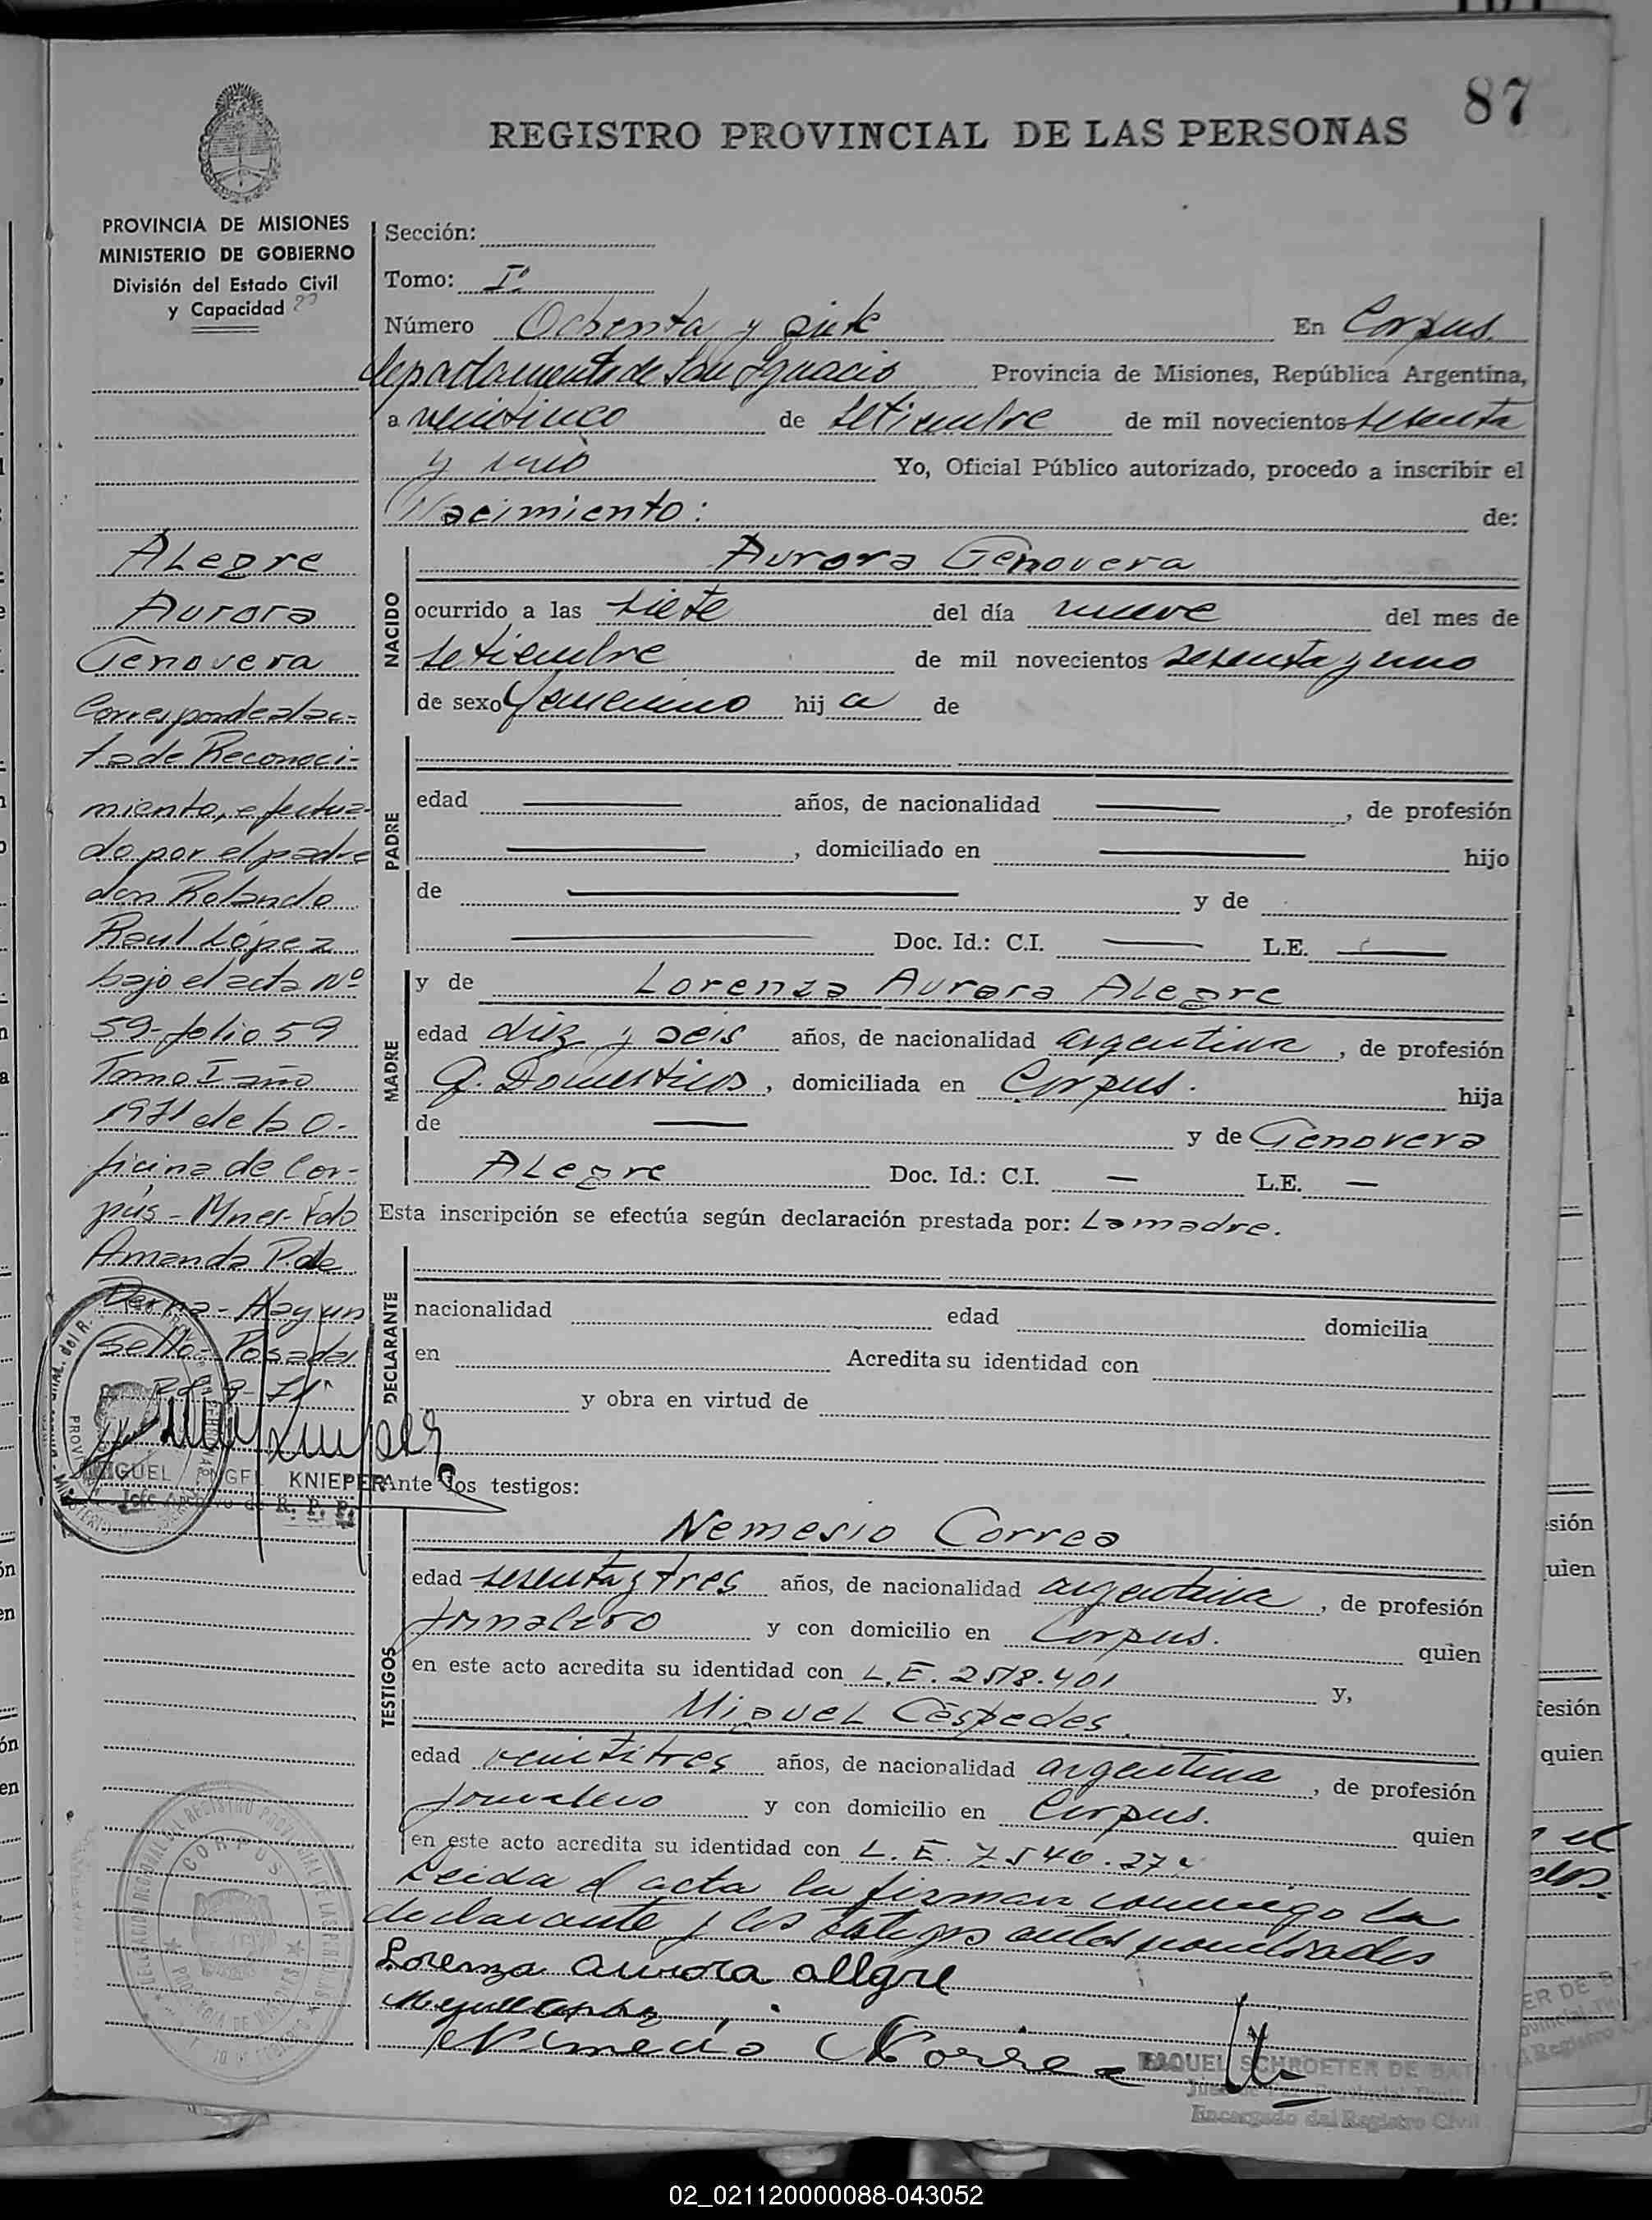 87
REGISTRO PROVINCIAL DE LAS PERSONAS
PROVINCIA DE MISIONES
MINISTERIO DE GOBIERNO
División del Estado Civil
y Capacidad
Alegre
Aurora
Genovera
Corresponde al ac-
ta de Reconoci-
miento, efectua-
do por el padre
don Rolando
Raul López
bajo el acta Nº
59 - folio 59
Tomo I año
1971 de la O-
ficina de Cor-
pús - Mnes - Fdo
Amanda P. de
Perna - Hay un
sello - Posadas
MIGUEL ANGEL KNIEPER
Jefe Archivo de R. P. P.
Sección:
Tomo: Iº
Número Ochenta y siete En Corpus.
departamento de San Ignacio Provincia de Misiones, República Argentina,
a veinticinco de setiembre de mil novecientos setenta
y uno Yo, Oficial Público autorizado, procedo a inscribir el
Nacimiento: de:
NACIDO
Aurora Genovera
ocurrido a las siete del día nueve del mes de
setiembre de mil novecientos setenta y uno
de sexo femenino hija de
PADRE
edad años, de nacionalidad , de profesión
, domiciliado en hijo
de y de
Doc. Id.: C.I. L.E.
MADRE
y de Lorenza Aurora Alegre
edad diez y seis años, de nacionalidad argentina, de profesión
Q. Domesticos, domiciliada en Corpus. hija
de — y de Genovera
Alegre Doc. Id.: C.I. — L.E. —
Esta inscripción se efectúa según declaración prestada por: La madre.
DECLARANTE
nacionalidad edad domicilia
en Acredita su identidad con
y obra en virtud de
Ante los testigos:
TESTIGOS
Nemesio Correa
edad sesenta y tres años, de nacionalidad argentina, de profesión
jornalero y con domicilio en Corpus. quien
en este acto acredita su identidad con L.E. 2518.401 y,
Miguel Céspedes.
edad veintitres años, de nacionalidad argentina, de profesión
jornalero y con domicilio en Corpus. quien
en este acto acredita su identidad con L.E. 7.540.27
Leida el acta la firman conmigo la
declarante y los testigos antes nombrados
Lorenza aurora allgre
Nimecio Correa
RAQUEL SCHROETER DE
Encargado del Registro Civil
CORPUS
02_021120000088-043052